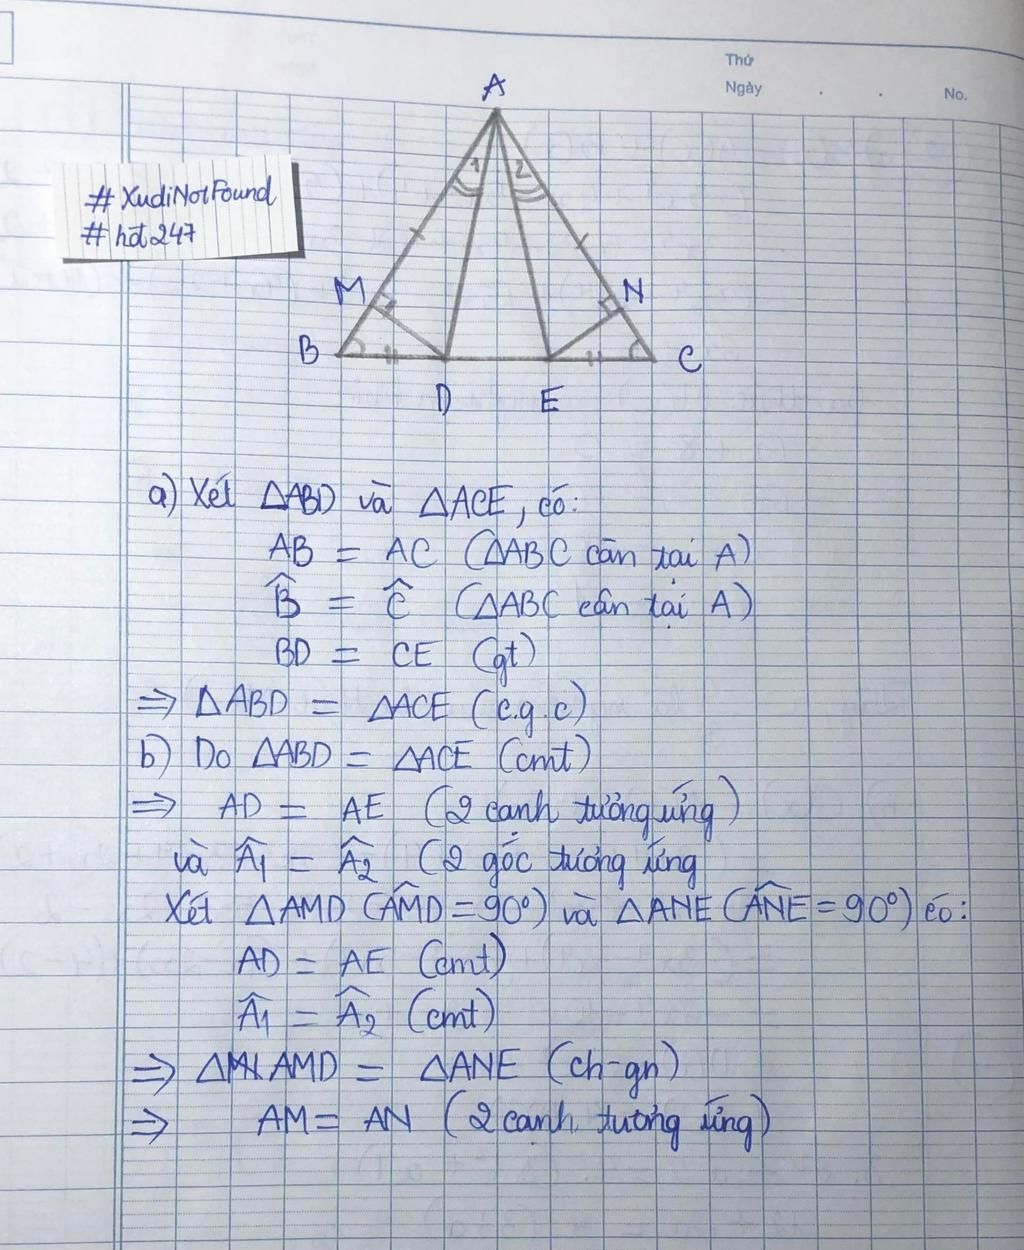 Thứ
Ngày . . No.
#XudiNotFound
#hot247
A
1 2
M N
B C
D E
a) Xét △ABD và △ACE, có:
AB = AC (△ABC cân tại A)
B̂ = Ĉ (△ABC cân tại A)
BD = CE (gt)
⇒ △ABD = △ACE (c.g.c)
b) Do △ABD = △ACE (cmt)
⇒ AD = AE (2 cạnh tương ứng)
và Â1 = Â2 (2 góc tương ứng
Xét △AMD (AM̂D = 90°) và △ANE (AN̂E = 90°) có:
AD = AE (cmt)
Â1 = Â2 (cmt)
⇒ △AMD = △ANE (ch-gn)
⇒ AM = AN (2 cạnh tương ứng)